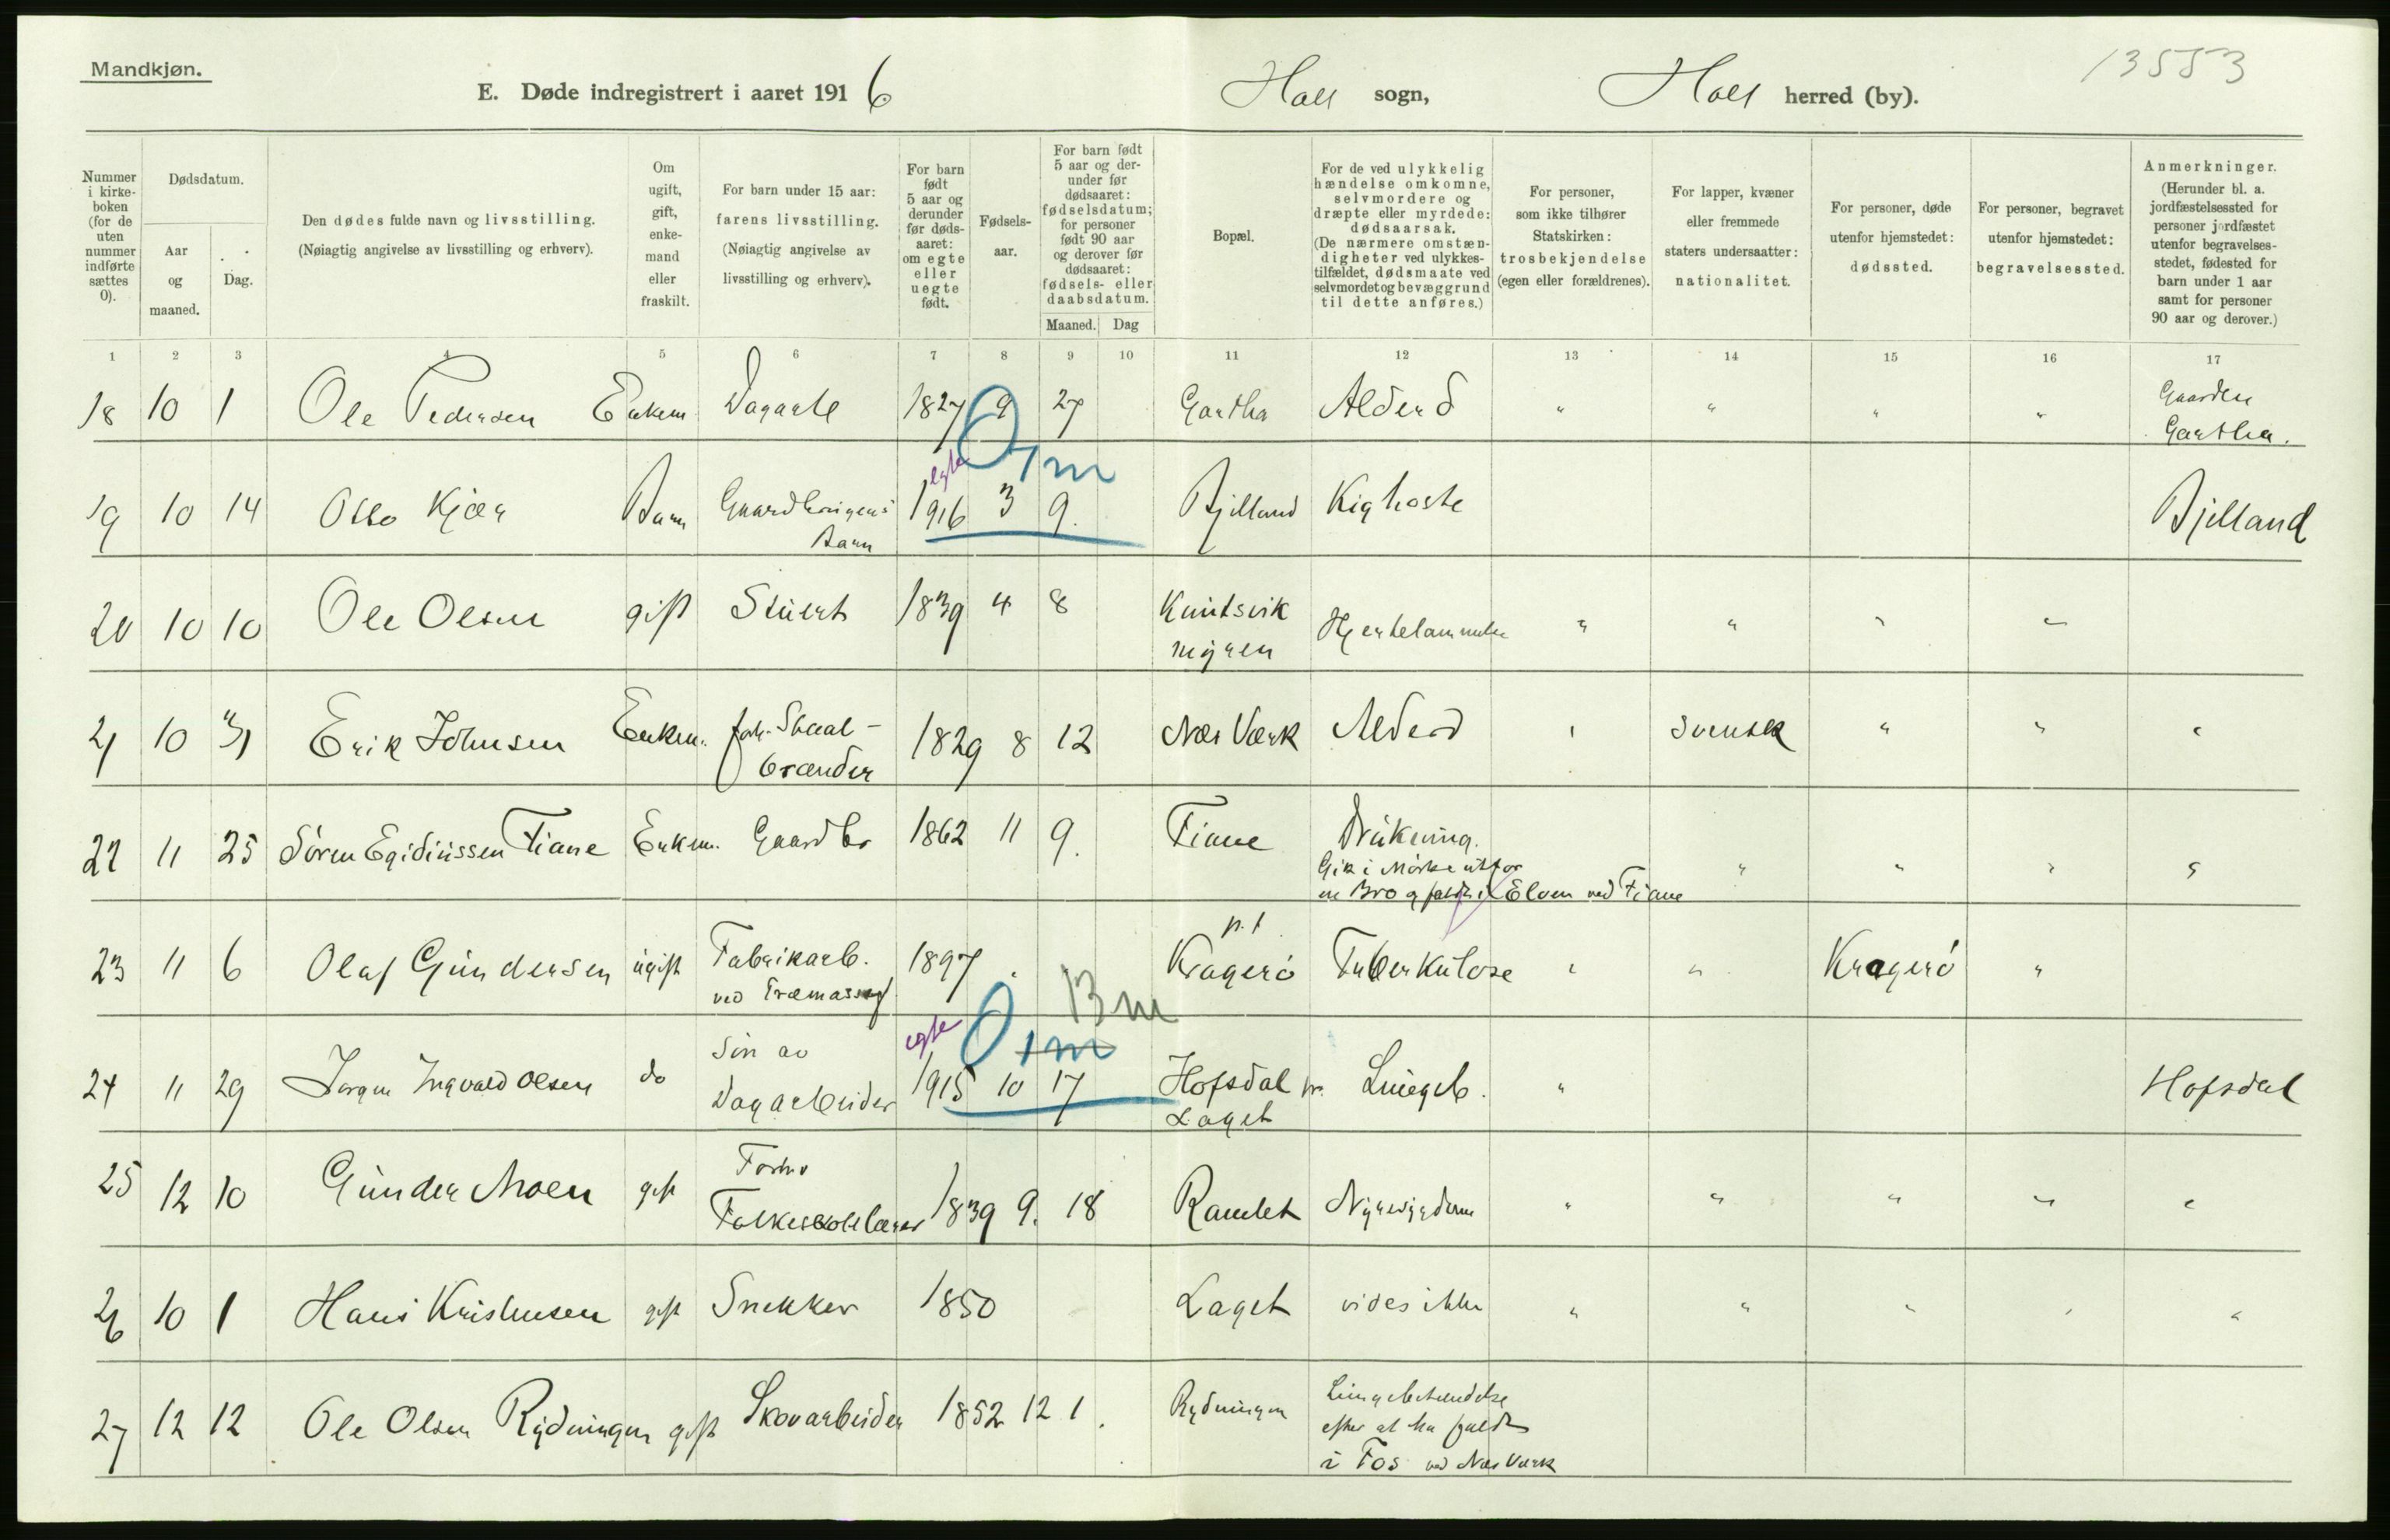 Mandkjøn.
13553
E. Døde indregistrert i aaret 1916 Holt sogn, Holt herred (by).
Nummer i kirke- boken (for de uten nummer indførte sættes 0).
Dødsdatum.
Aar og maaned.
Dag.
Den dødes fulde navn og livsstilling.
(Nøiagtig angivelse av livsstilling og erhverv).
Om ugift, gift, enke- mand eller fraskilt.
For barn under 15 aar: farens livsstilling. (Nøiagtig angivelse av livsstilling og erhverv).
For barn født 5 aar og derunder før døds- aaret: om egte eller uegte født.
Fødsels- aar.
For barn født 5 aar og der- under før dødsaaret: fødselsdatum; for personer født 90 aar og derover før dødsaaret: fødsels- eller daabsdatum.
Maaned. Dag
Bopæl.
For de ved ulykkelig hændelse omkomne, selvmordere og dræpte eller myrdede: dødsaarsak. (De nærmere omstæn- digheter ved ulykkes- tilfældet, dødsmaate ved selvmordet og bevæggrund til dette anføres.)
For personer, som ikke tilhører Statskirken: trosbekjendelse (egen eller forældrenes).
For lapper, kvæner eller fremmede staters undersaatter: nationalitet.
For personer, døde utenfor hjemstedet: dødssted.
For personer, begravet utenfor hjemstedet: begravelsessted.
Anmerkninger.
(Herunder bl. a. jordfæstelsessted for personer jordfæstet utenfor begravelses- stedet, fødested for barn under 1 aar samt for personer 90 aar og derover.)
1 2 3 4 5 6 7 8 9 10 11 12 13 14 15 16 17
18 10 1 Ole Pedersen Enkem. Dagarb 1827 9 27 Gartha Alderd " " " " Gaarden
Gartha.
egte 0 1 m
19 10 14 Otto Kjær Barn Gaardbrugers 1916 3 9. Bjelland Kighoste Bjelland
Barn
20 10 10 Ole Olsen gift Stuert 1839 4 8 Knutsvik Hjertelammelse " " " "
myren
21 10 31 Erik Johnsen Enkem. forh. Staal- 1829 8 12 Næs Værk Alderd " svensk " " "
brænder
22 11 25 Søren Egidiussen Fiane Enkem. Gaardbr 1862 11 9. Fiane Drukning.
Gik i Mørke utfor " " " "
en Bro og faldt i Elven ved Fiane
p.t.
23 11 6 Olaf Gundersen ugift Fabrikarb. 1897. Kragerø Tuberkulose " " Kragerø "
ved Træmassef
egte 0 1 m 13 m
Søn av
24 11 29 Jørgen Ingvald Olsen do Dagarbeider 1915 10 17 Hofsdal pr. Lungeb. " Hofsdal
Laget
Forhv
25 12 10 Gunder Moen gift Folkeskolelærer 1839 9. 18 Ramlet Nyresygdom " " " " "
26 10 1 Hans Kristensen gift Snekker 1850 Laget vides ikke " " " " "
27 12 12 Ole Olsen Rydningen gift Skovarbeider 1852 12 1. Rydningen Lungebetændelse
efter at ha faldt
i Fos ved Næs Værk